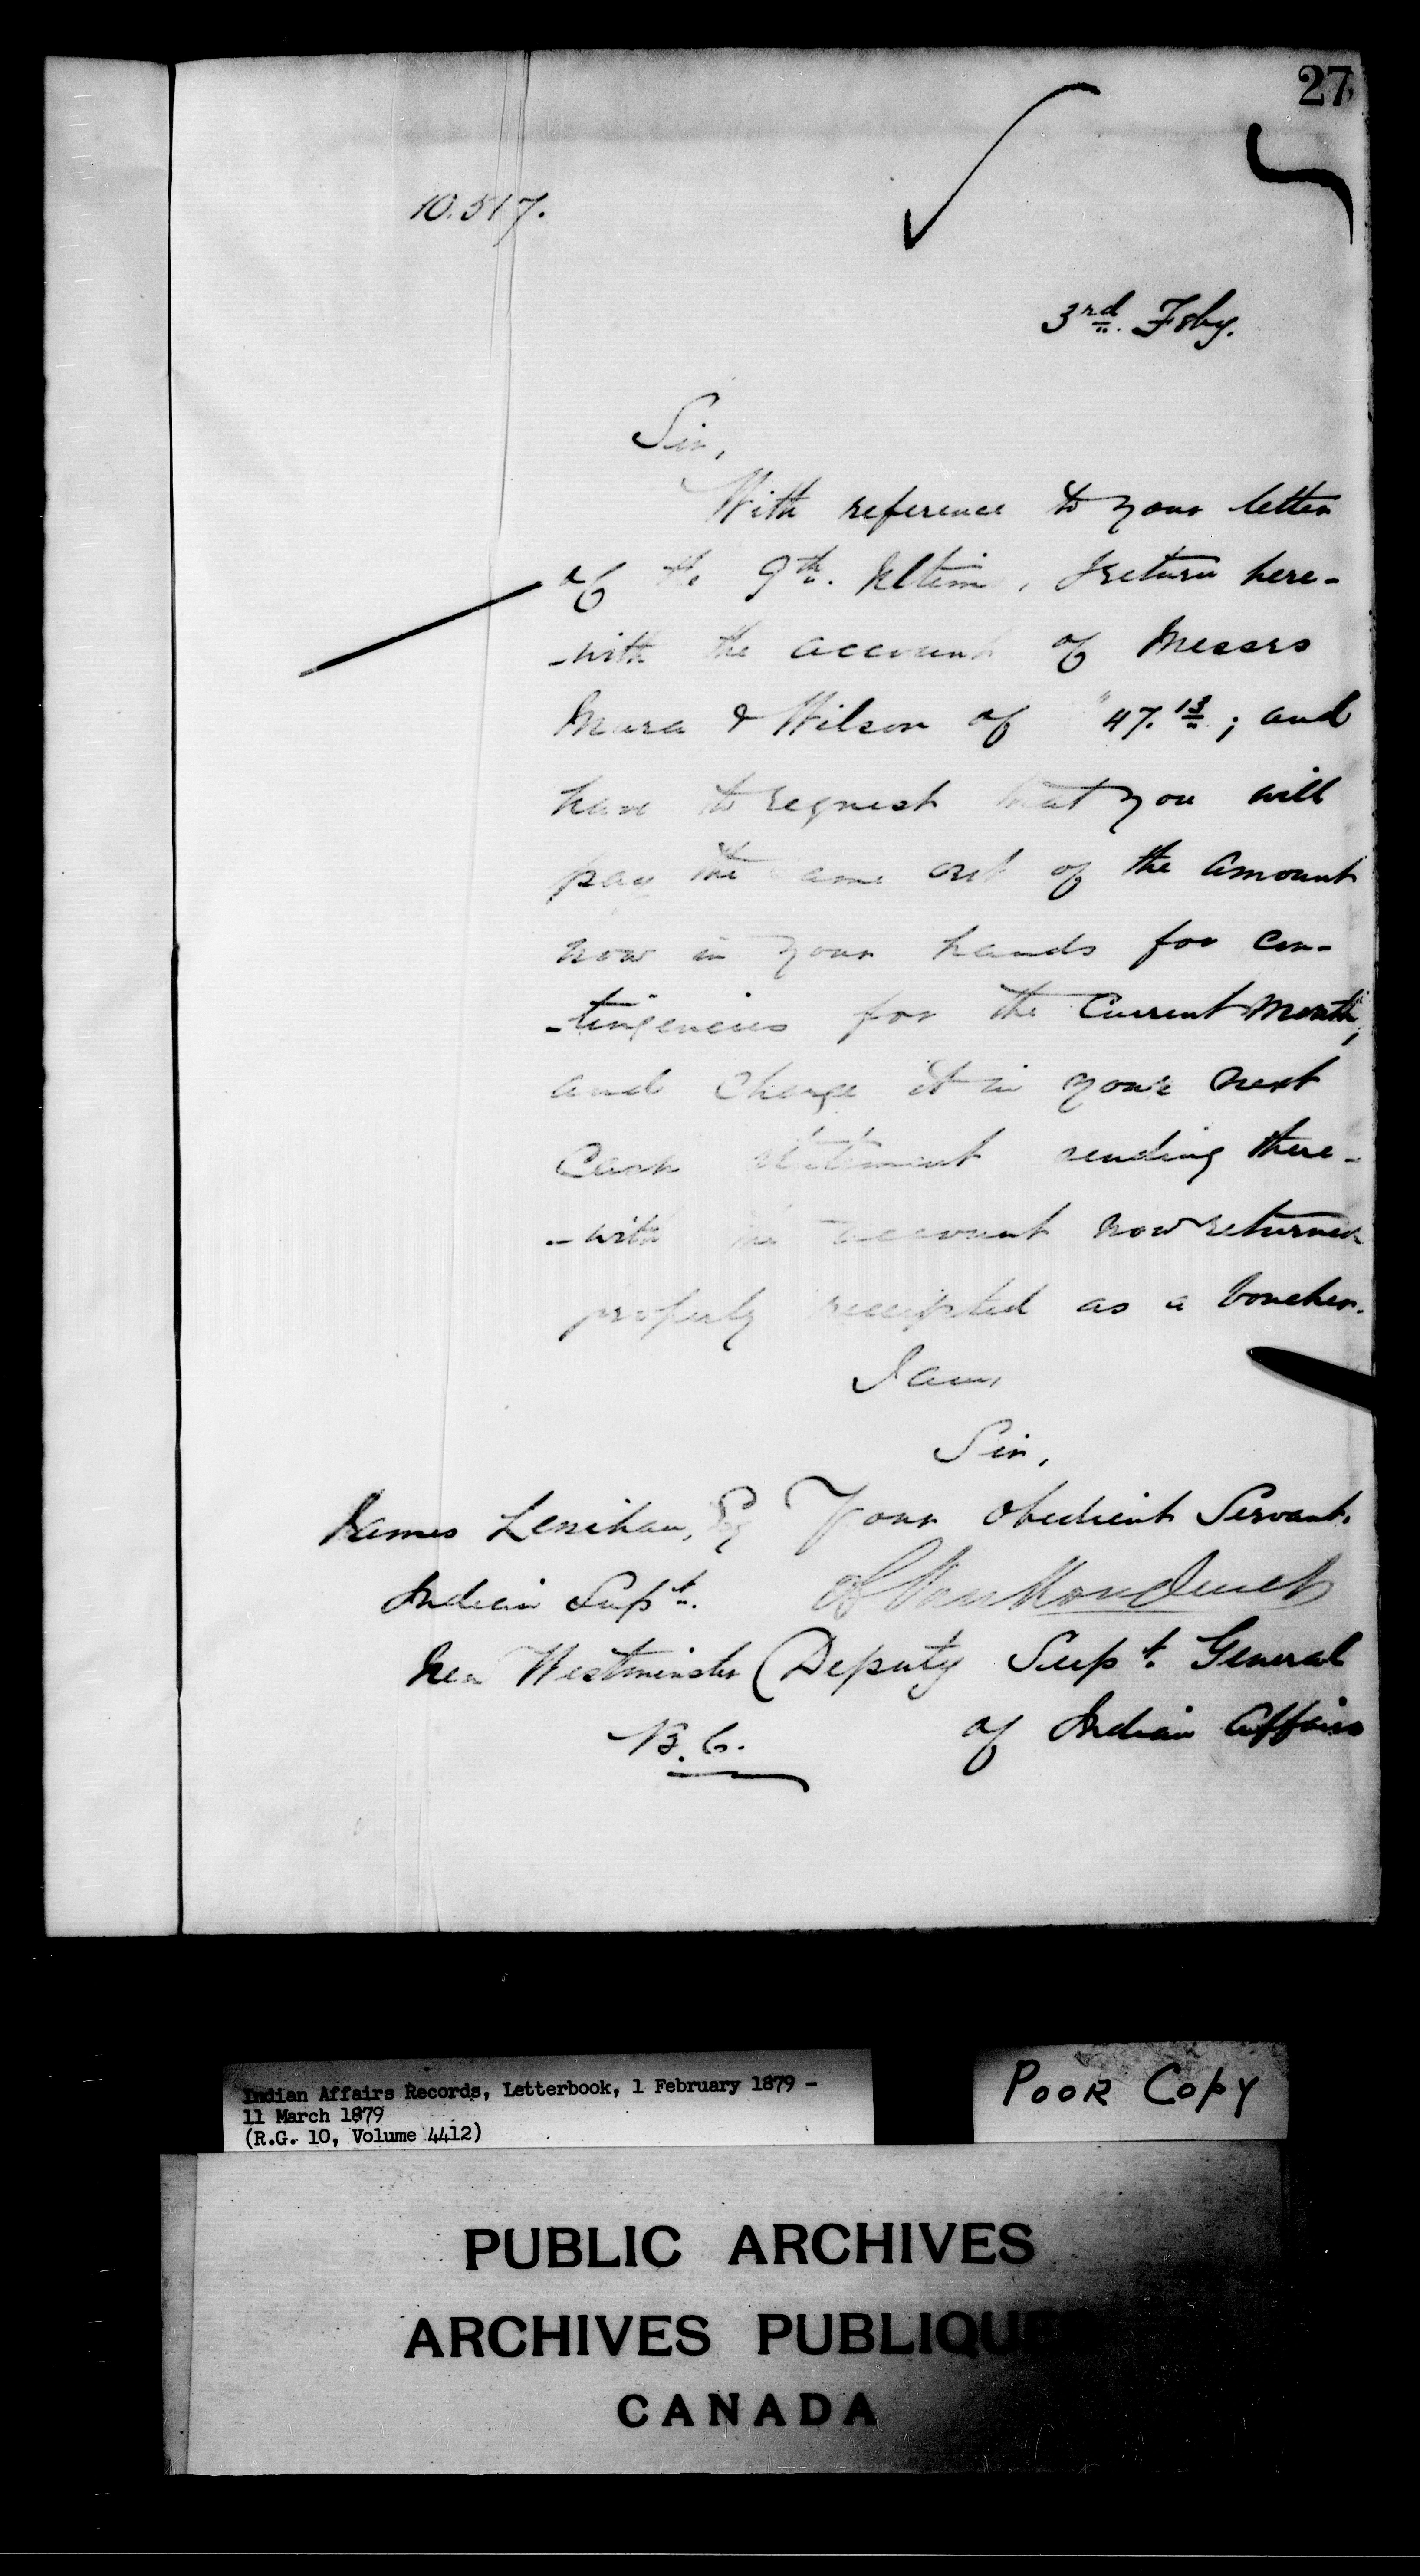 27
10.517.
3rd. Feby.
Sir,
With reference to your letter
of the 9th. Ultimo, I return here-
-with the account of Messrs
Mara & Wilson of 47.13; and
have to request that you will
pay the same out of the amount
now in your hands for con-
-tingencies for the Current Month,
and charge it in your next
Cash statement sending there-
-with the account now returned
properly receipted as a voucher.
I am,
Sir,
James Lenihan, Esq Your obedient Servant.
Indian Supt. L VanKoughnet
New Westminster Deputy Supt. General
B.C. of Indian Affairs
Indian Affairs Records, Letterbook, 1 February 1879 -
11 March 1879
(R.G. 10, Volume 4412)
POOR COPY
PUBLIC ARCHIVES
ARCHIVES PUBLIQUES
CANADA